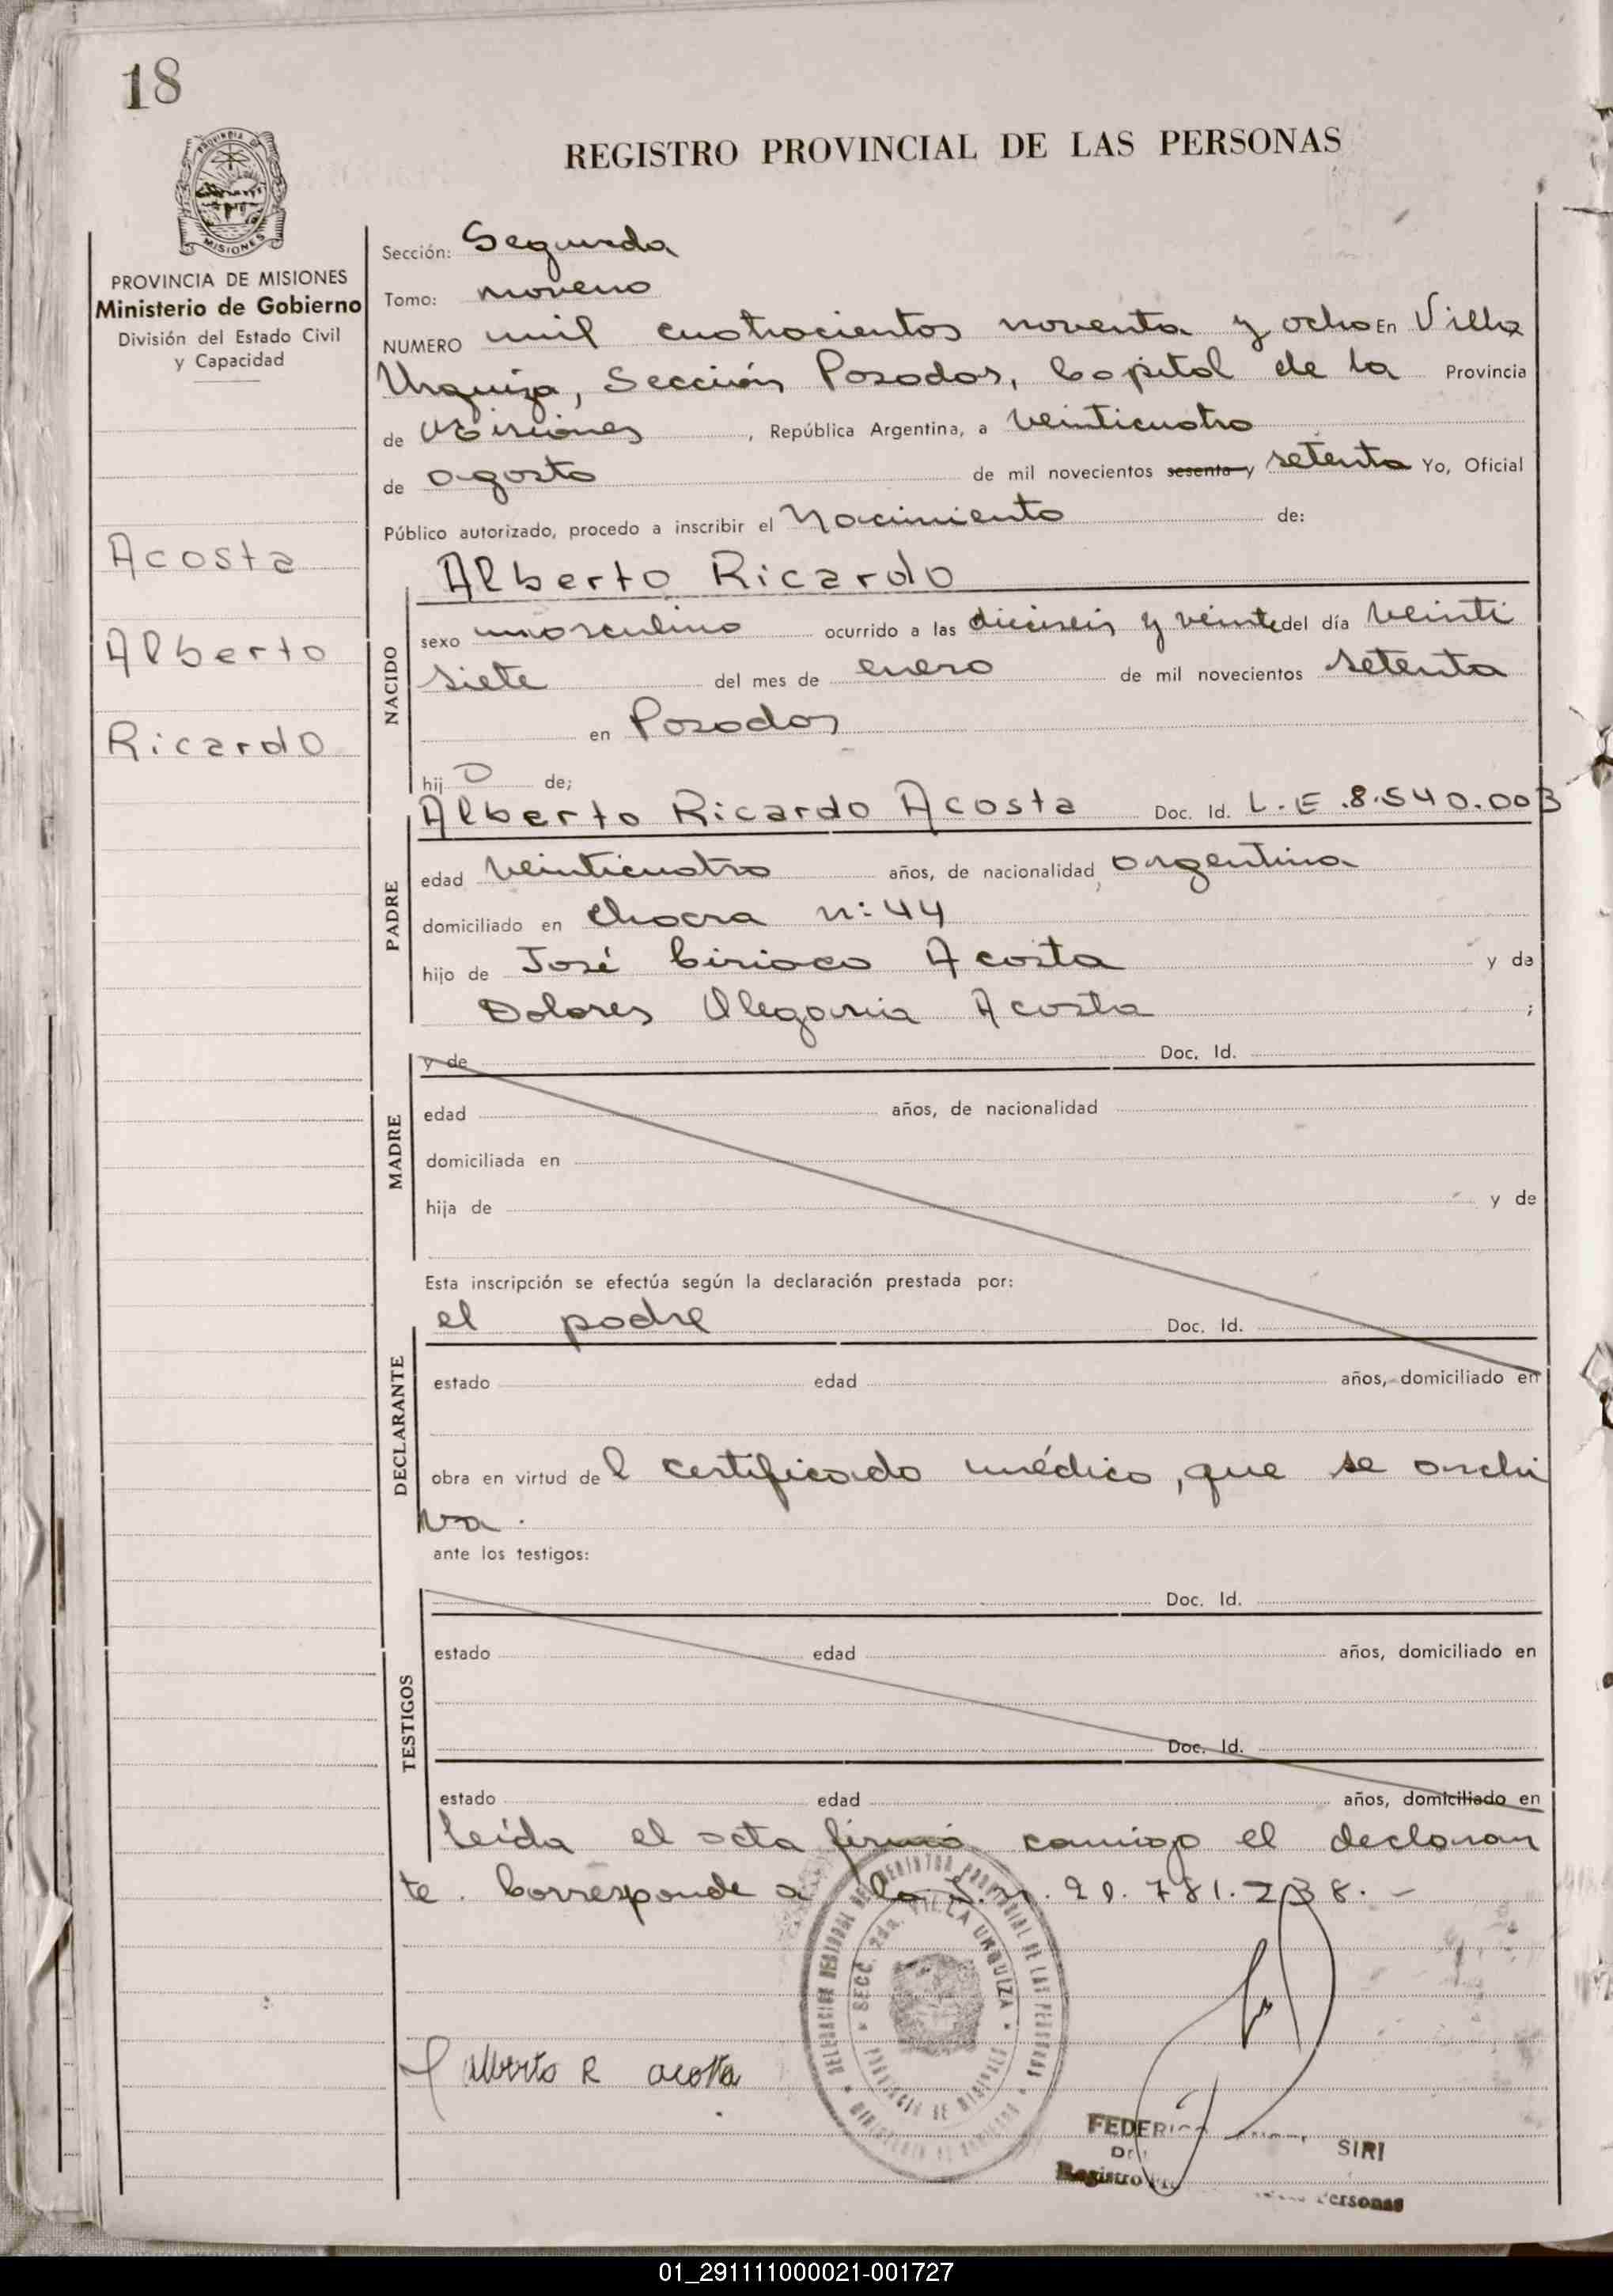 18
REGISTRO PROVINCIAL DE LAS PERSONAS
PROVINCIA DE MISIONES
Ministerio de Gobierno
División del Estado Civil
y Capacidad
Acosta
Alberto
Ricardo
Sección: Segunda
Tomo: noveno
NUMERO mil cuatrocientos noventa y ocho En Villa
Urquiza, Sección Posadas, Capital de la Provincia
de Misiones, República Argentina, a veinticuatro
de agosto de mil novecientos sesenta y setenta Yo, Oficial
Público autorizado, procedo a inscribir el Nacimiento de:
NACIDO
Alberto Ricardo
sexo masculino ocurrido a las dieciseis y veinte del día veinti
siete del mes de enero de mil novecientos setenta
en Posadas
hij o de;
PADRE
Alberto Ricardo Acosta Doc. Id. L.E.8.540.003
edad veinticuatro años, de nacionalidad argentina
domiciliado en chacra n: 44
hijo de José Ciriaco Acosta y de
Dolores Olegaria Acosta ;
MADRE
y de Doc. Id.
edad años, de nacionalidad
domiciliada en
hija de y de
Esta inscripción se efectúa según la declaración prestada por:
DECLARANTE
el padre Doc. Id.
estado edad años, domiciliado en
obra en virtud de l certificado médico, que se archi
va.
ante los testigos:
TESTIGOS
Doc. Id.
estado edad años, domiciliado en
Doc. Id.
estado edad años, domiciliado en
leída el acta firmó conmigo el declaran
te. Corresponde a la 781.238.-
DELEGACION REGIONAL DEL REGISTRO PROVINCIAL DE LAS PERSONAS
SECC. 2da. VILLA URQUIZA
PROVINCIA DE MISIONES
Alberto R acosta
SIRI
Registro Personas
01_291111000021-001727